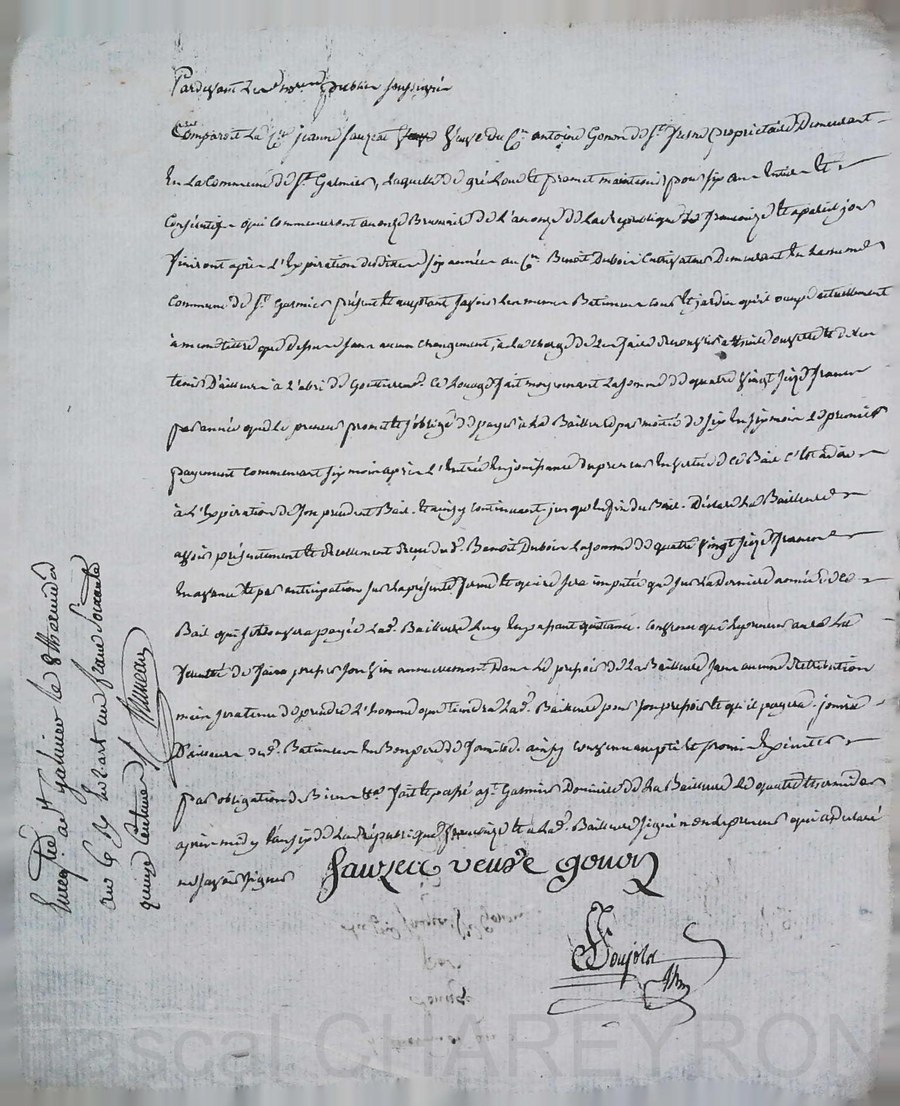 Pardevant Le Nore public soussigné
Comparoit La Cne jeanne sauzea veuve du Cn antoine Gonon de St jusne proprietaire Demeurant
En La Commune de St Galmier, Laquelle de gré Loue et promet maintenir pour six ans Entiers Et
Consécutifs qui commenceront au onze Brumaire de L'an onze de La République francaise Et a pareil jour
finiront après L'Expiration desdites six années au Cn Benoit Duboin Cultivateur Demeurant En La même
Commune de St Garmier présent Et acceptant savoir Les mêmes Batimens Cour Et jardin qu'il occupe actuellement
à même titre que dessus sans aucun changement, à La charge de Les faire
tenir D'ailleurs à L'abri de Goutieres. Ce Louage fait moyennant La somme de quatre vingt seize francs
par année que Le preneur promet Et s'oblige de payer à La Bailleuse par moitié de six En six mois Le premier
payement commencant six mois après L'Entrée En jouissance du preneur En vertu de ce Bail c'est adire
à L'Expiration de son precedent Bail. Et ainsy continuant jusqu'en fin du Bail. Déclare La Bailleuse
avoir présentement Et réellement reçu dud. Benoit Duboin La somme de quatre vingt seize francs
En avance Et par anticipation sur La présente ferme Et qui ne sera imputée que sur La derniere année de ce
Bail qui se trouvera payée Lad. Bailleuse Luy En passant quittance. Convenu que Le preneur aura La
faculté de faire presser son vin annuellement Dans Le pressoir de La Bailleuse sans aucune Retribution
mais sera tenu de prendre L'homme que tiendra Lad. Bailleuse pour son pressoir Et qu'il payera. jouira
D'ailleurs desd. Batimens En Bon pere de famille. ainsy convenu accepté Et promis Exécuter
par obligation de Biens &a fait Et passé a St Garmier Domicile de La Bailleuse Le quatre thermidor
après midy L'an six de La République francaise Et a Lad. Bailleuse signé non Le preneur qui a declaré
ne savoir signer
sauzea veuve gonon
Poujola
Nre
Enregtré a St galmier le 8 thermidor
an 6 Reçu un franc soixante
quinze centimes